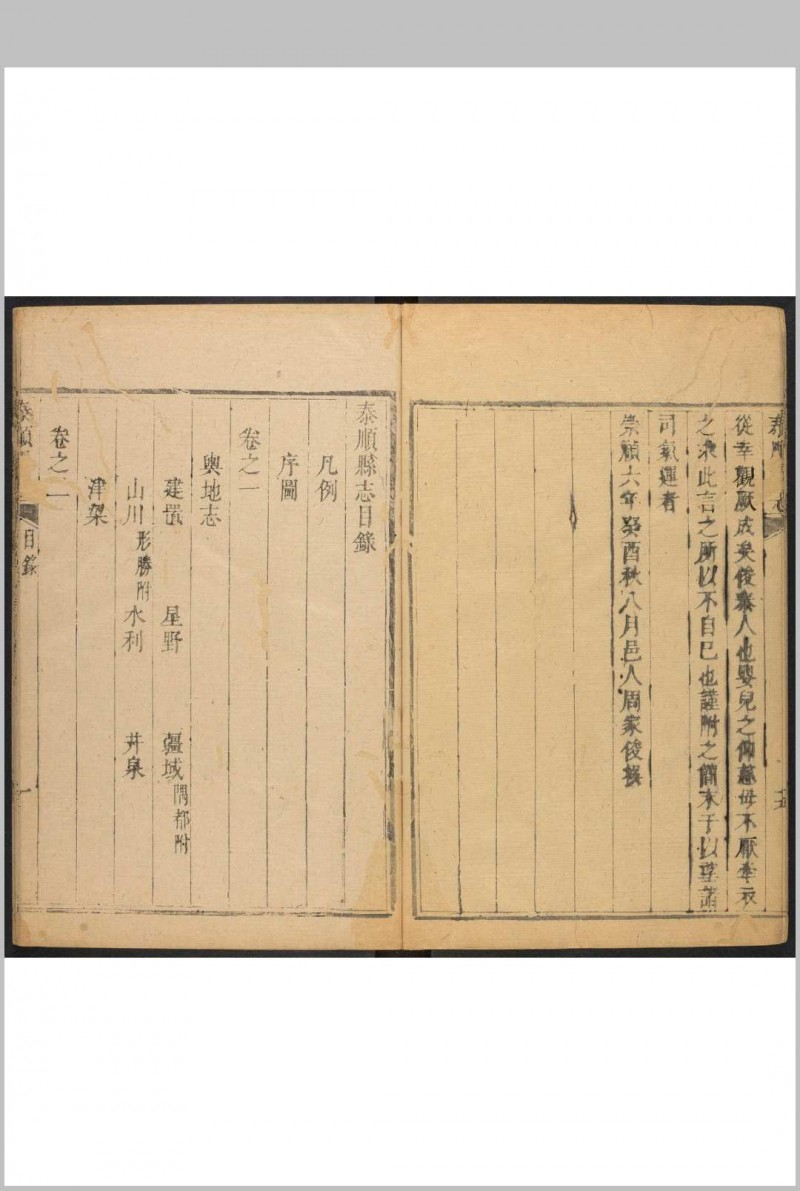 從幸觀厥成矣俊泰人也嬰兒之仰慈母不厭牽衣
之求此言之所以不自已也謹附之簡末于以望諸
司氣運者
崇禎六年癸酉秋八月邑人周家俊撰
泰順縣志目錄
凡例
序圖
卷之一
輿地志
建置 星野 疆域隅都附
山川形勝附 水利 井泉
津梁
卷之二
泰順 目錄 一